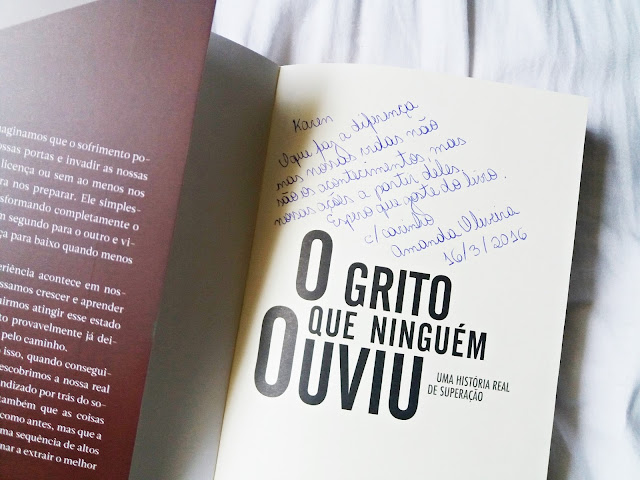 aginamos que o sofrimento po-
ossas portas e invadir as nossas
licença ou sem ao menos nos
ra nos preparar. Ele simples-
sformando completamente o
m segundo para o outro e vi-
ça para baixo quando menos
eriência acontece em nos-
ssamos crescer e aprender
uirmos atingir esse estado
to provavelmente já dei-
pelo caminho.
isso, quando consegui-
escobrimos a nossa real
ndizado por trás do so-
também que as coisas
como antes, mas que a
ma sequência de altos
nar a extrair o melhor
Karen
O que faz a diferença
nas nossas vidas não
são os acontecimentos, mas
nossas ações a partir deles.
Espero que goste do livro.
c/ carinho
Amanda Oliveira
16/3/2016
O GRITO
QUE NINGUÉM
OUVIU
UMA HISTÓRIA REAL
DE SUPERAÇÃO